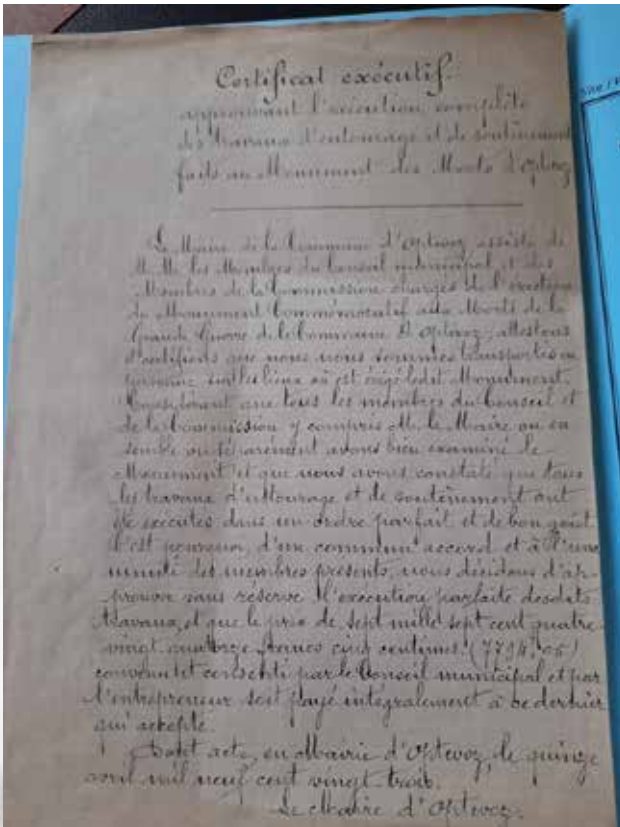 Certificat exécutif
approuvant l'exécution complète
des travaux d'entourage et de soutènement
faits au Monument des Morts d'Optevoz
Le Maire de la Commune d'Optevoz assisté de
M.M. les Membres du Conseil municipal et des
Membres de la Commission chargés de l'érection
du Monument Commémoratif aux Morts de la
Grande Guerre de la Commune d'Optevoz, attestons
et certifions que nous nous sommes transportés en
personne sur les lieux où est érigé ledit Monument.
Considérant que tous les membres du Conseil et
de la Commission y compris M. le Maire ou en
semble ou séparément avons bien examiné le
Monument et que nous avons constaté que tous
les travaux d'entourage et de soutènement ont
été exécutés dans un ordre parfait et de bon goût
C'est pourquoi, d'un commun accord et à l'una
nimité des membres présents, nous décidons d'ap-
prouver sans réserve l'exécution parfaite desdits
travaux, et que le prix de sept mille sept cent quatre
vingt quatorze francs cinq centimes (7794,05)
convenu et consenti par le Conseil municipal et par
l'entrepreneur soit payé intégralement à ce dernier
qui accepte.
Dont acte, en Mairie d'Optevoz, le quinze
avril mil neuf cent vingt-trois.
Le Maire d'Optevoz.